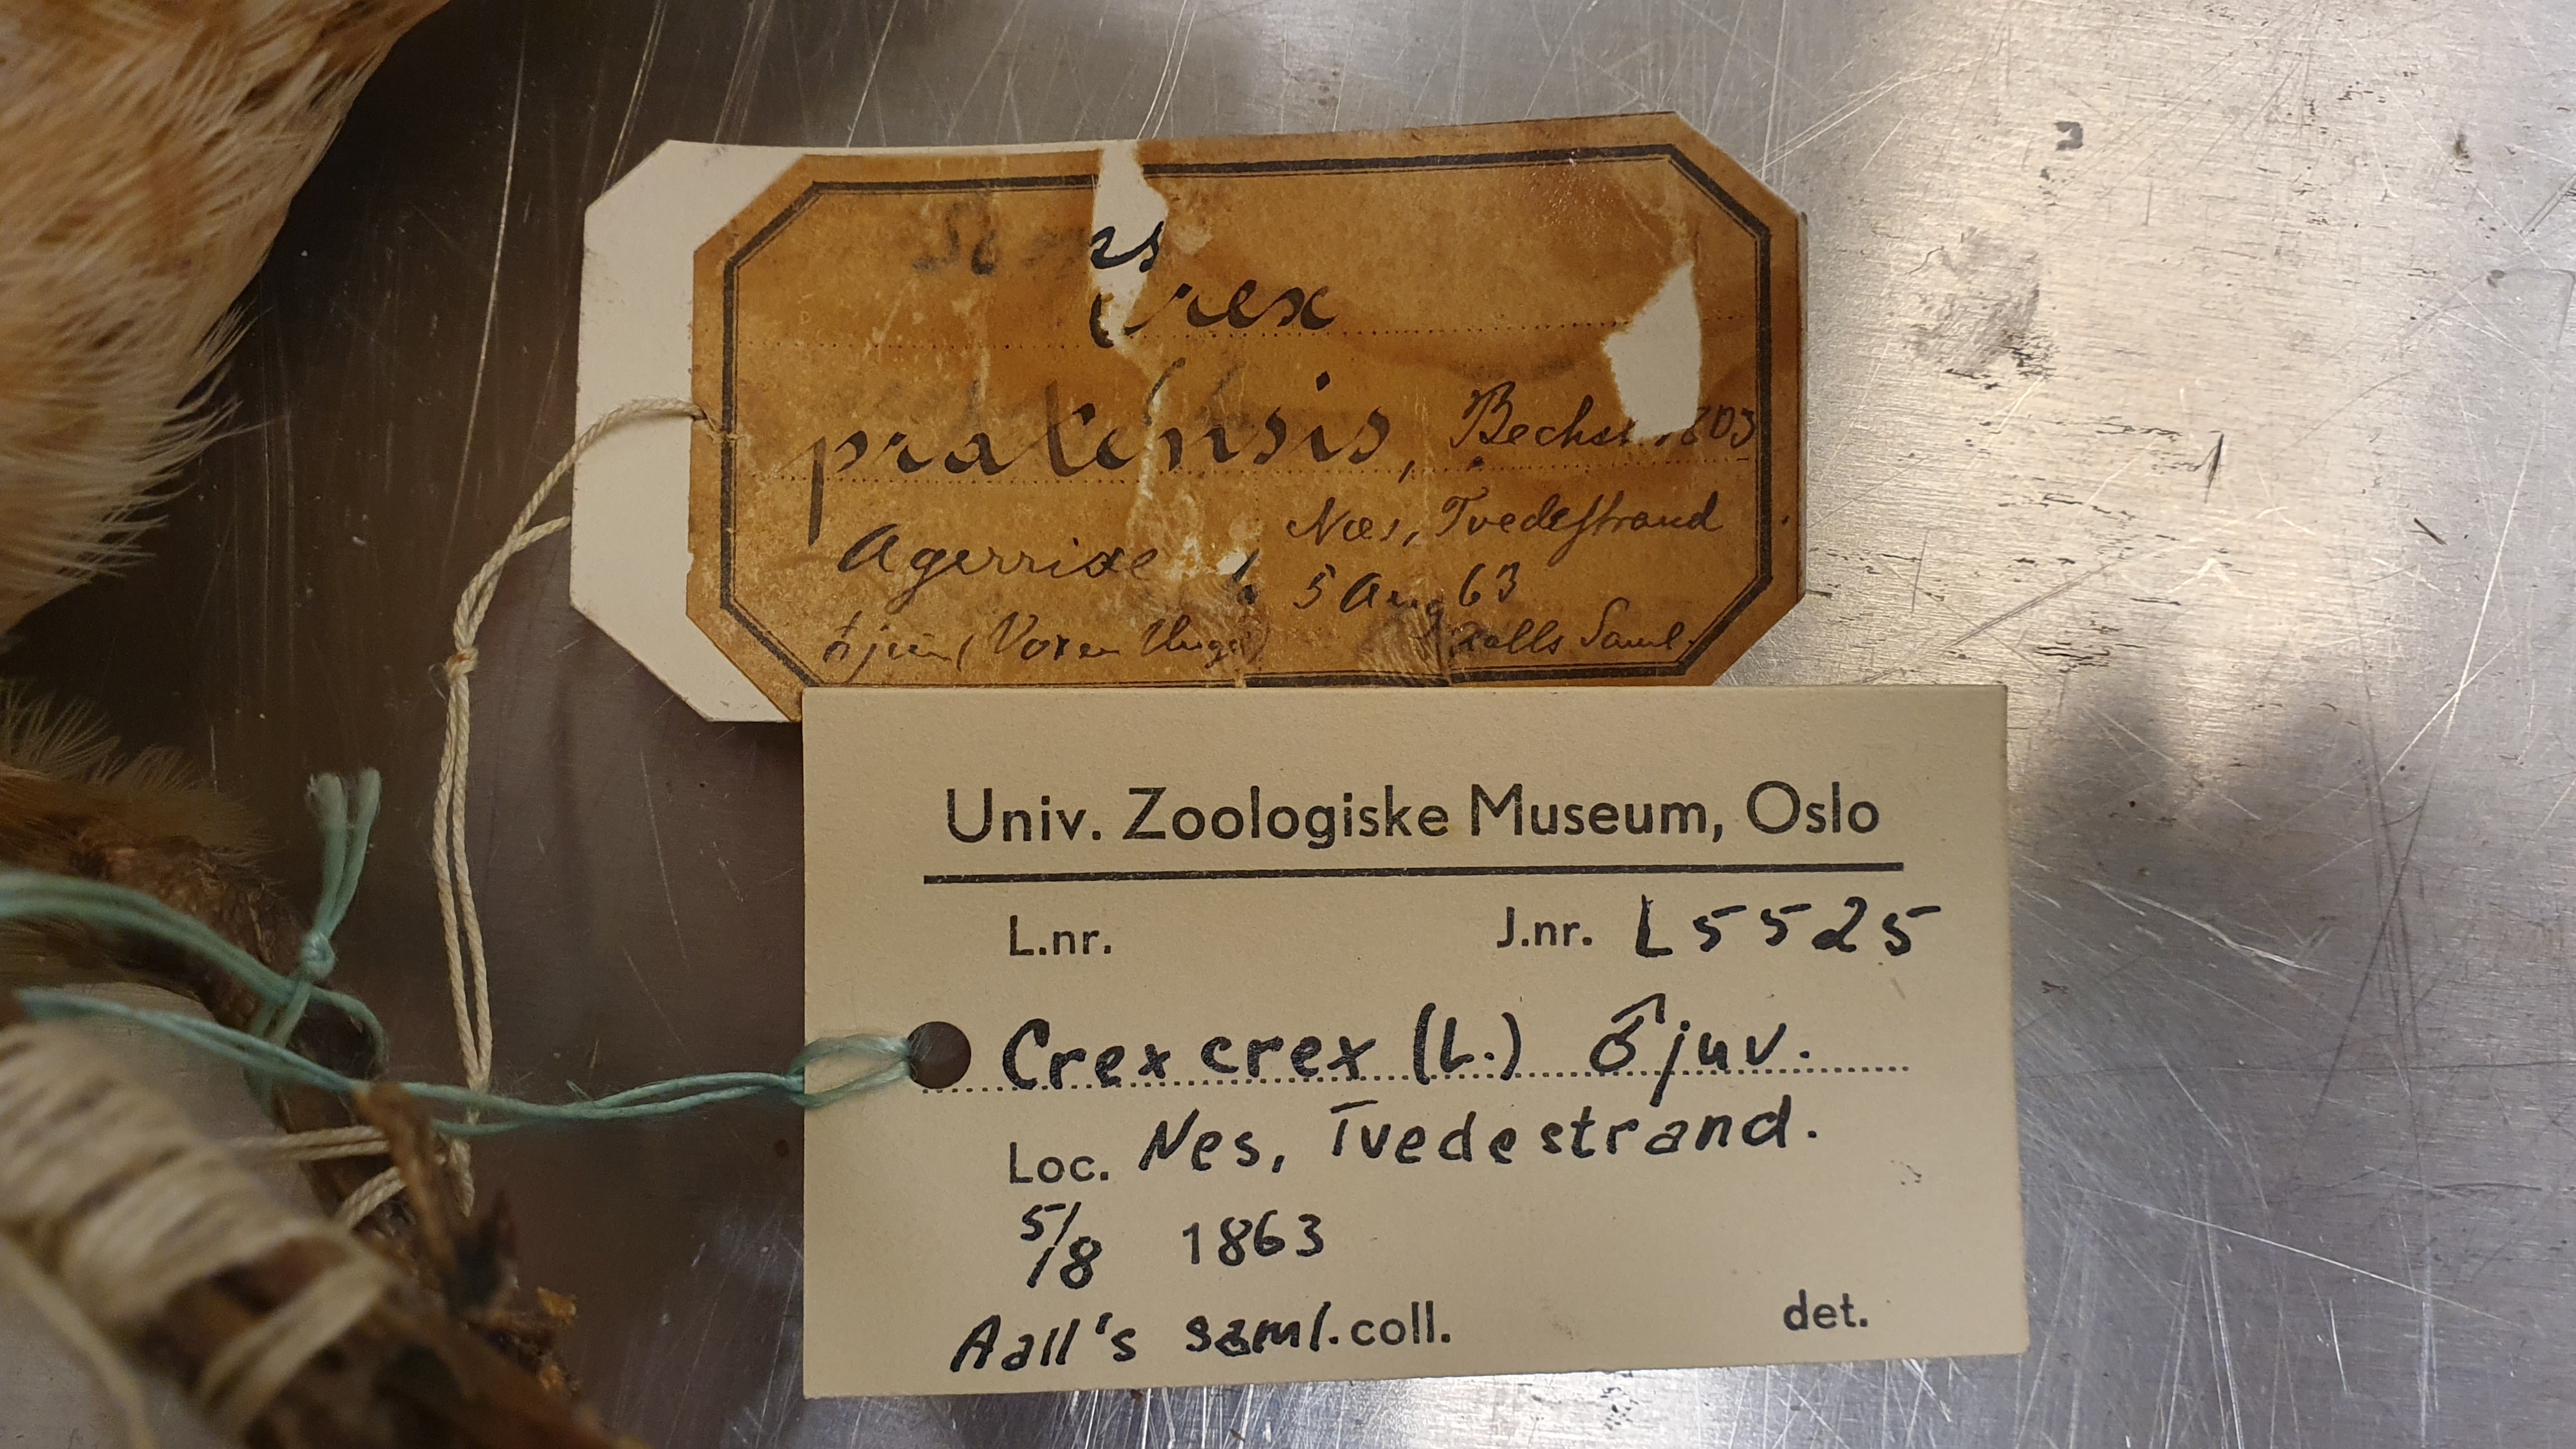 Crex
pratensis, Bechst. 1803
Agerrixe
Næs, Tvedestrand
5 Aug 63
♂ jun. (Voxen Unge)
Aalls Saml.
Univ. Zoologiske Museum, Oslo
L.nr. J.nr. L5525
Crex crex (L.) ♂ juv.
Loc. Nes, Tvedestrand.
5/8 1863
Aall's saml. coll. det.